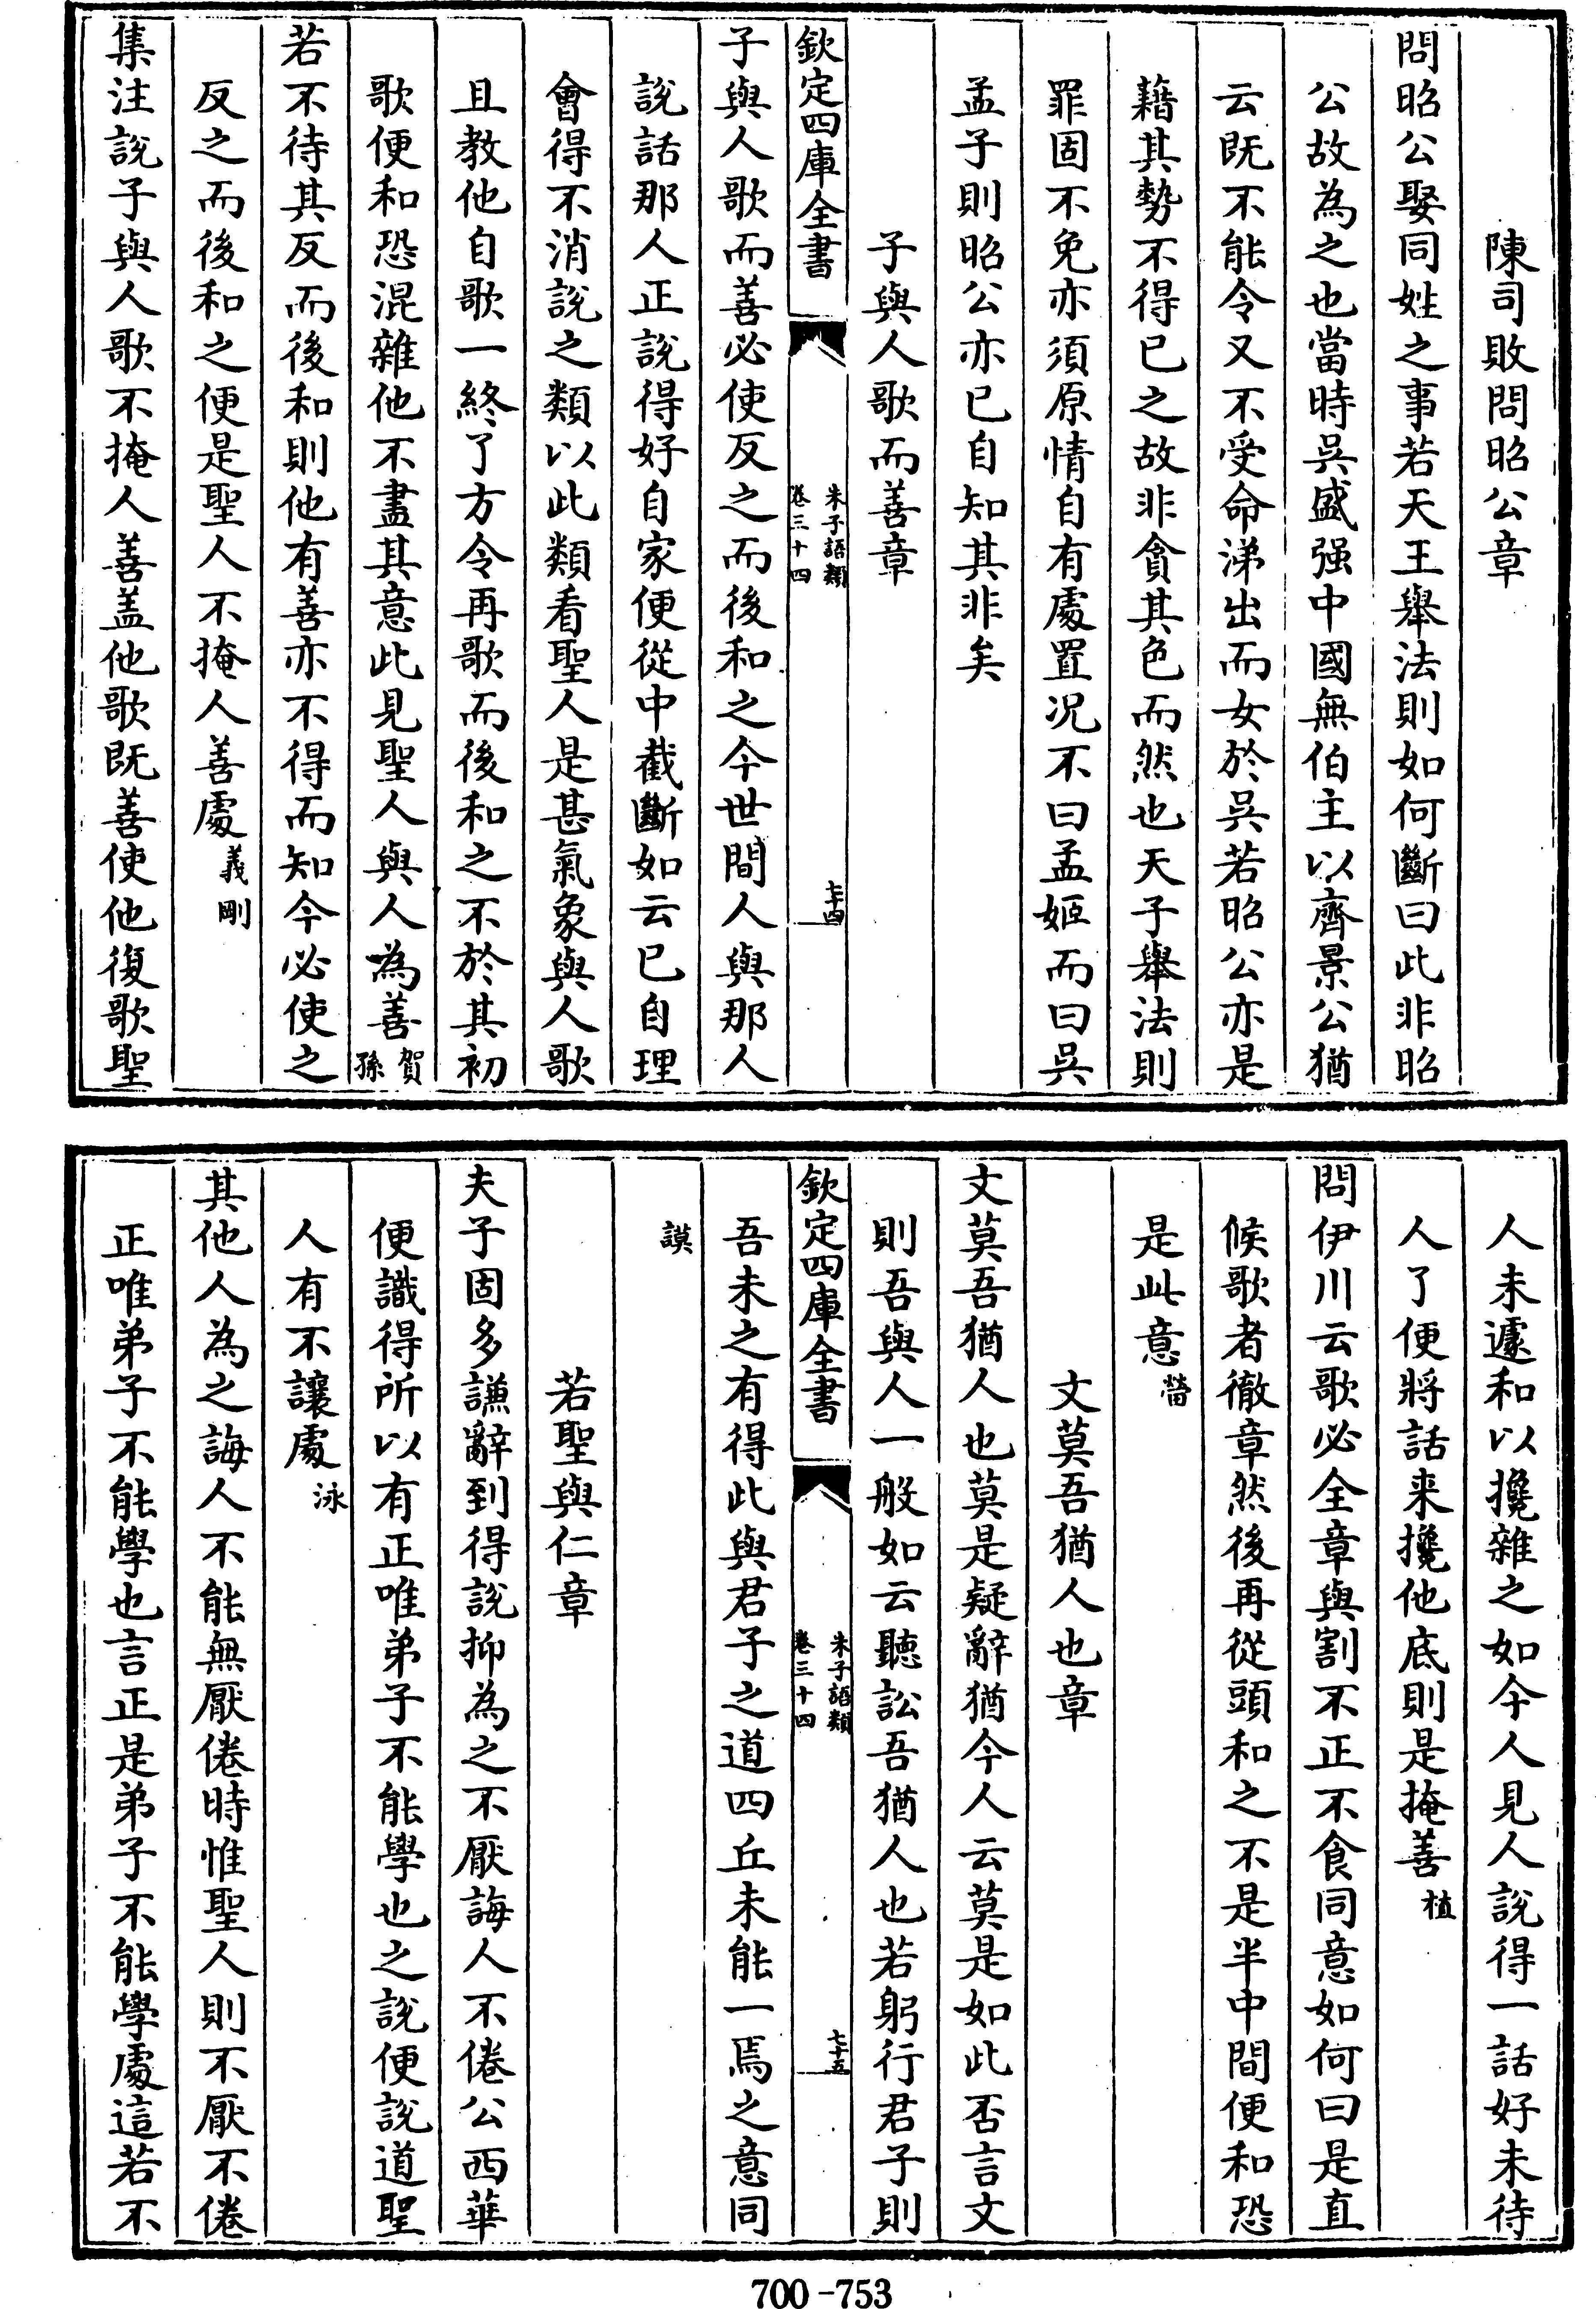 陳司敗問昭公章
問昭公娶同姓之事若天王舉法則如何斷曰此非昭
公故為之也當時吳盛强中國無伯主以齊景公猶
云既不能令又不受命涕出而女於吳若昭公亦是
藉其勢不得已之故非貪其色而然也天子舉法則
罪固不免亦須原情自有處置况不曰孟姬而曰吳
孟子則昭公亦已自知其非矣
子與人歌而善章
欽定四庫全書
朱子語類
卷三十四
七十四
子與人歌而善必使反之而後和之今世間人與那人
說話那人正說得好自家便從中截斷如云已自理
會得不消說之類以此類看聖人是甚氣象與人歌
且教他自歌一終了方令再歌而後和之不於其初
歌便和恐混雜他不盡其意此見聖人與人為善賀孫
若不待其反而後和則他有善亦不得而知今必使之
反之而後和之便是聖人不掩人善處義剛
集注說子與人歌不掩人善盖他歌既善使他復歌聖
人未遽和以攙雜之如今人見人說得一話好未待
人了便將話来攙他底則是掩善植
問伊川云歌必全章與割不正不食同意如何曰是直
候歌者徹章然後再從頭和之不是半中間便和恐
是此意㽦
文莫吾猶人也章
文莫吾猶人也莫是疑辭猶今人云莫是如此否言文
則吾與人一般如云聽訟吾猶人也若躬行君子則
欽定四庫全書
朱子語類
卷三十四
七十五
吾未之有得此與君子之道四丘未能一焉之意同
謨
若聖與仁章
夫子固多謙辭到得說抑為之不厭誨人不倦公西華
便識得所以有正唯弟子不能學也之說便說道聖
人有不讓處泳
其他人為之誨人不能無厭倦時惟聖人則不厭不倦
正唯弟子不能學也言正是弟子不能學處這若不
700-753